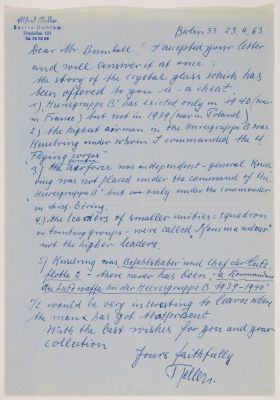 Alfred Keller
Berlin-Dahlem
Berlin 33 23.4.63
Dear Mr. Bumball! I accepted your letter
and will answer it at once:
the story of the crystal glass which has
been offered to you is - a cheat.
1) "Heeresgruppe B" has existed only in 1940 (war
in France) but not in 1939 (war in Poland)
2) the highest airman in the Heeresgruppe B was
Kesselring under whom I commanded the 4
"Flying corps"
3) the airforce was independent - general Kessel
ring was not placed under the command of the
"Heeresgruppe B" but was only under the commander
in chief Göring.
4) the leaders of smaller unities: squadron
or bombing groups - were called "Kommandeur"
not the higher leaders.
5) Kesselring was Befehlshaber and Chef der Luft-
flotte 2 - there never has been "a Kommandeur
der Luftwaffe bei der Heeresgruppe B 1939-1940"
It would be very interesting to learn where
the man has got that present.
With the best wishes for you and your
collection
Yours faithfully
Keller.